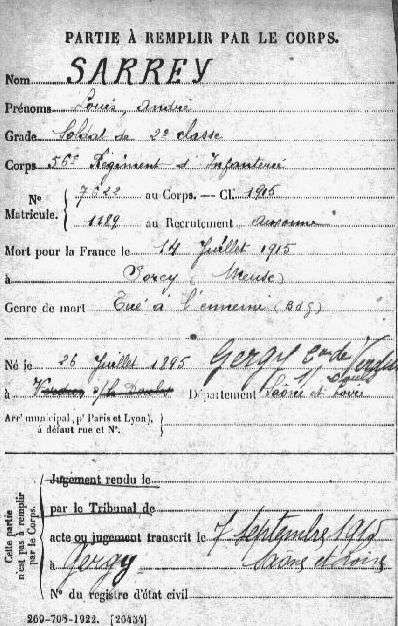 PARTIE À REMPLIR PAR LE CORPS.
Nom SARREY
Prénoms Louis, André
Grade Soldat de 2e classe
Corps 56e Régiment d'Infanterie
N° Matricule. 7622 au Corps. — Cl. 1915
1189 au Recrutement Auxonne
Mort pour la France le 14 Juillet 1915
à (Meuse)
Genre de mort Tué à l'ennemi
Né le 26 Juillet 1895 Gergy Con de Verdun
à Verdun s/ le Doubs Département Saône et Loire
Arrt municipal, (pr Paris et Lyon),
à défaut rue et N°.
Cette partie n'est pas à remplir par le Corps.
Jugement rendu le
par le Tribunal de
acte ou jugement transcrit le 7 septembre 1915
à Gergy Saône et Loire
N° du registre d'état civil
269-708-1922. [26434]